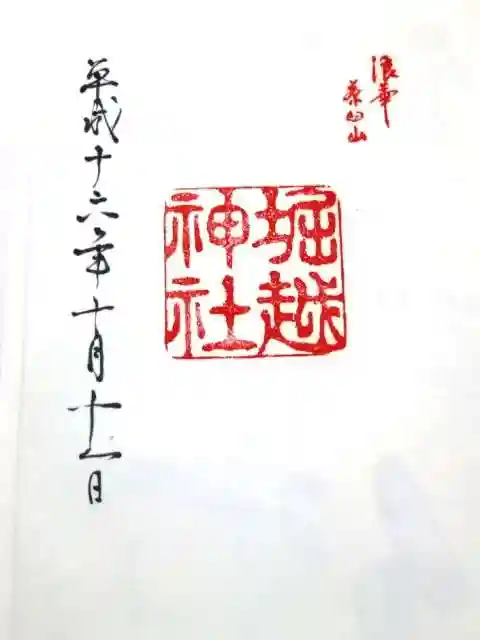 浪華
茶臼山
堀越
神社
平成十六年十月十一日